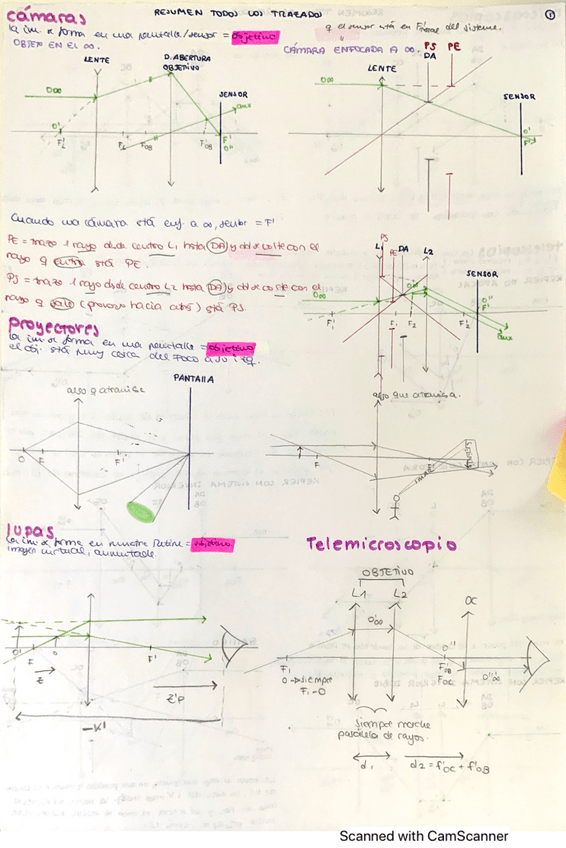 RESUMEN TODOS LOS TRAZADOS
1
cámaras
la im se forma en una pantalla/sensor = objetivo
OBJETO EN EL ∞.
q el sensor está en F' del sistema.
CÁMARA ENFOCADA A ∞.
LENTE
D. ABERTURA
OBJETIVO
SENSOR
O∞
O'
F'L
FL
FOB
F'OB
F'
O''
aux
PS PE
DA
LENTE
SENSOR
O∞
O'
Cuando una cámara está enf. a ∞, sensor = F'
PE = trazo 1 rayo desde centro L1 hasta DA y donde corte con el
rayo q entra está PE.
PS = trazo 1 rayo desde centro L2 hasta DA y donde corte con el
rayo q sale (prolongo hacia atrás) está PS.
PS
L1
PE
DA
L2
SENSOR
O∞
O''
F'
F'1
F1
F2
F'2
aux
proyectores
la im se forma en una pantalla = objetivo
el obj. está muy cerca del foco a su izq.
algo q atraviese
PANTALLA
O
F
F'
algo que atraviesa.
F
F'
lupas
la im se forma en nuestra Retina = objetivo
imagen virtual, aumentada.
O'
F
O
F'
z
z'P
-K'
Telemicroscopio
OBJETIVO
L1
L2
OC
O'∞
O''
F1
F'OB
FOC
O'''∞
O → siempre
F1 - O
siempre marcha
paralela de rayos.
d1
d2 = f'OC + f'OB
Scanned with CamScanner